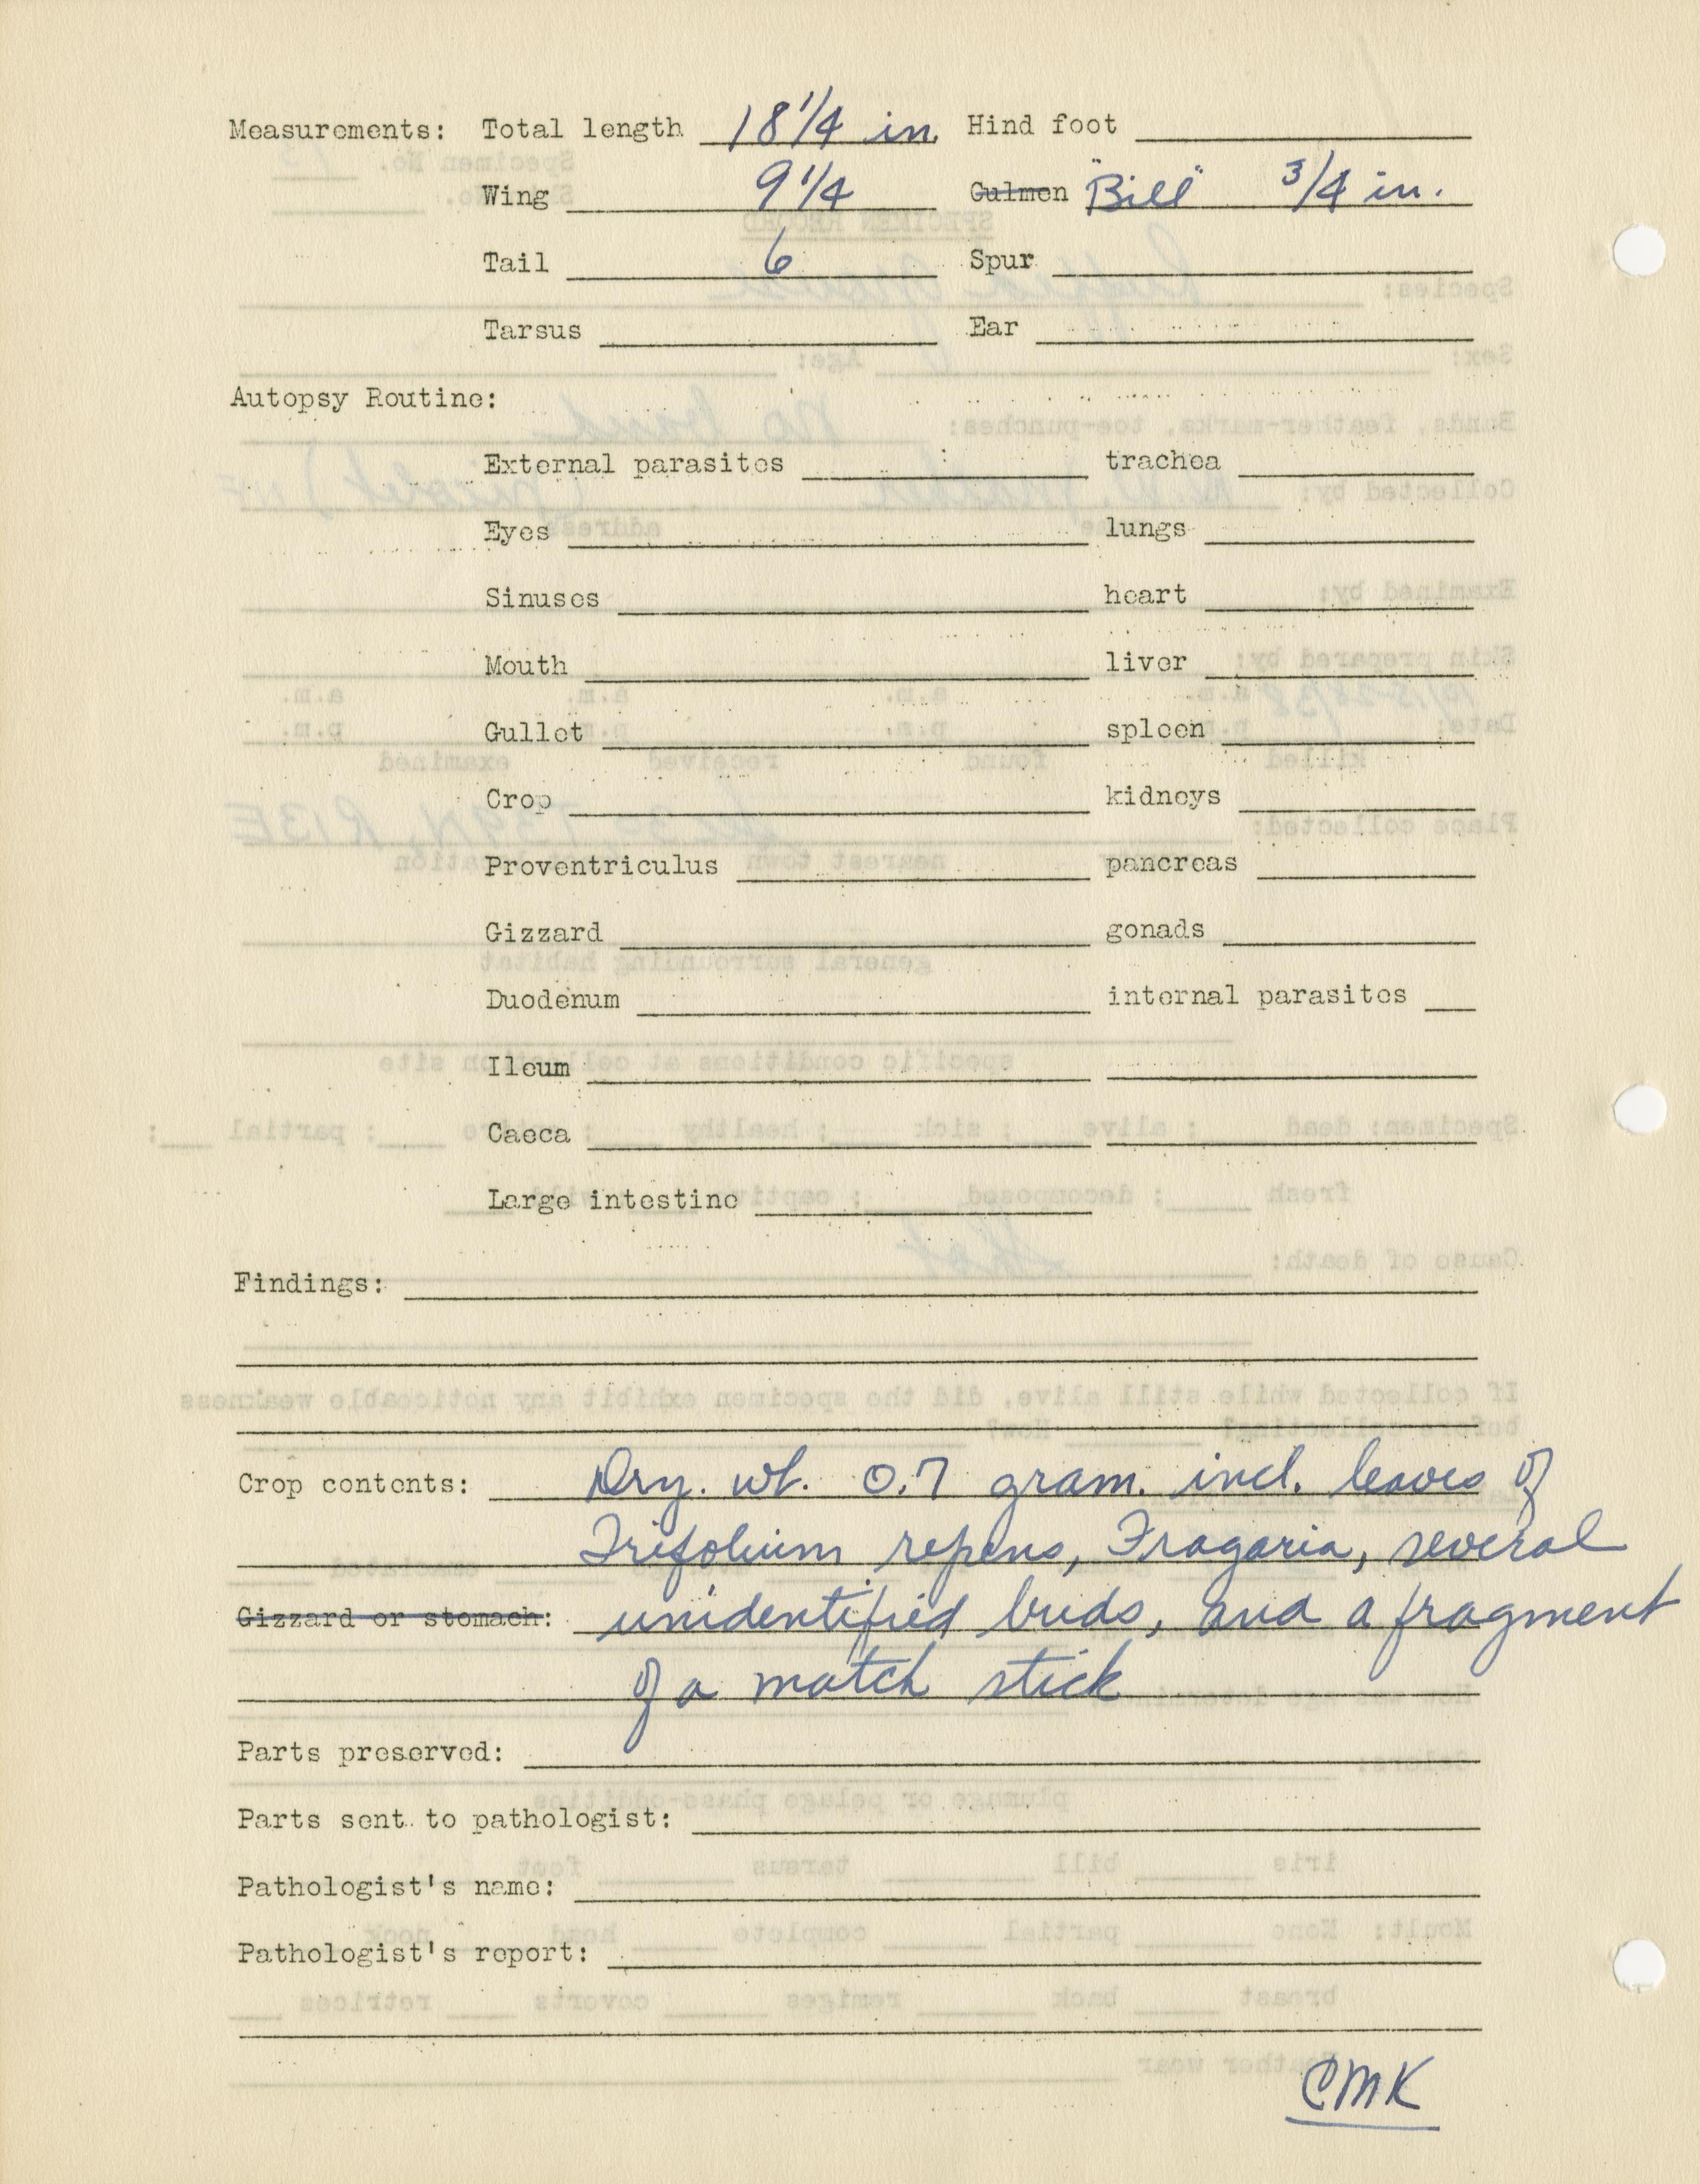 Measurements: Total length 18 1/4 in. Hind foot
Wing 9 1/4 Culmen "Bill" 3/4 in.
Tail 6 Spur
Tarsus Ear
Autopsy Routine:
External parasites trachea
Eyes lungs
Sinuses heart
Mouth liver
Gullet spleen
Crop kidneys
Proventriculus pancreas
Gizzard gonads
Duodenum internal parasites
Ileum
Caeca
Large intestine
Findings:
Crop contents: Dry. wt. 0.7 gram. incl. leaves of
Trifolium repens, Fragaria, several
Gizzard or stomach: unidentified buds, and a fragment
of a match stick
Parts preserved:
Parts sent to pathologist:
Pathologist's name:
Pathologist's report:
CMK